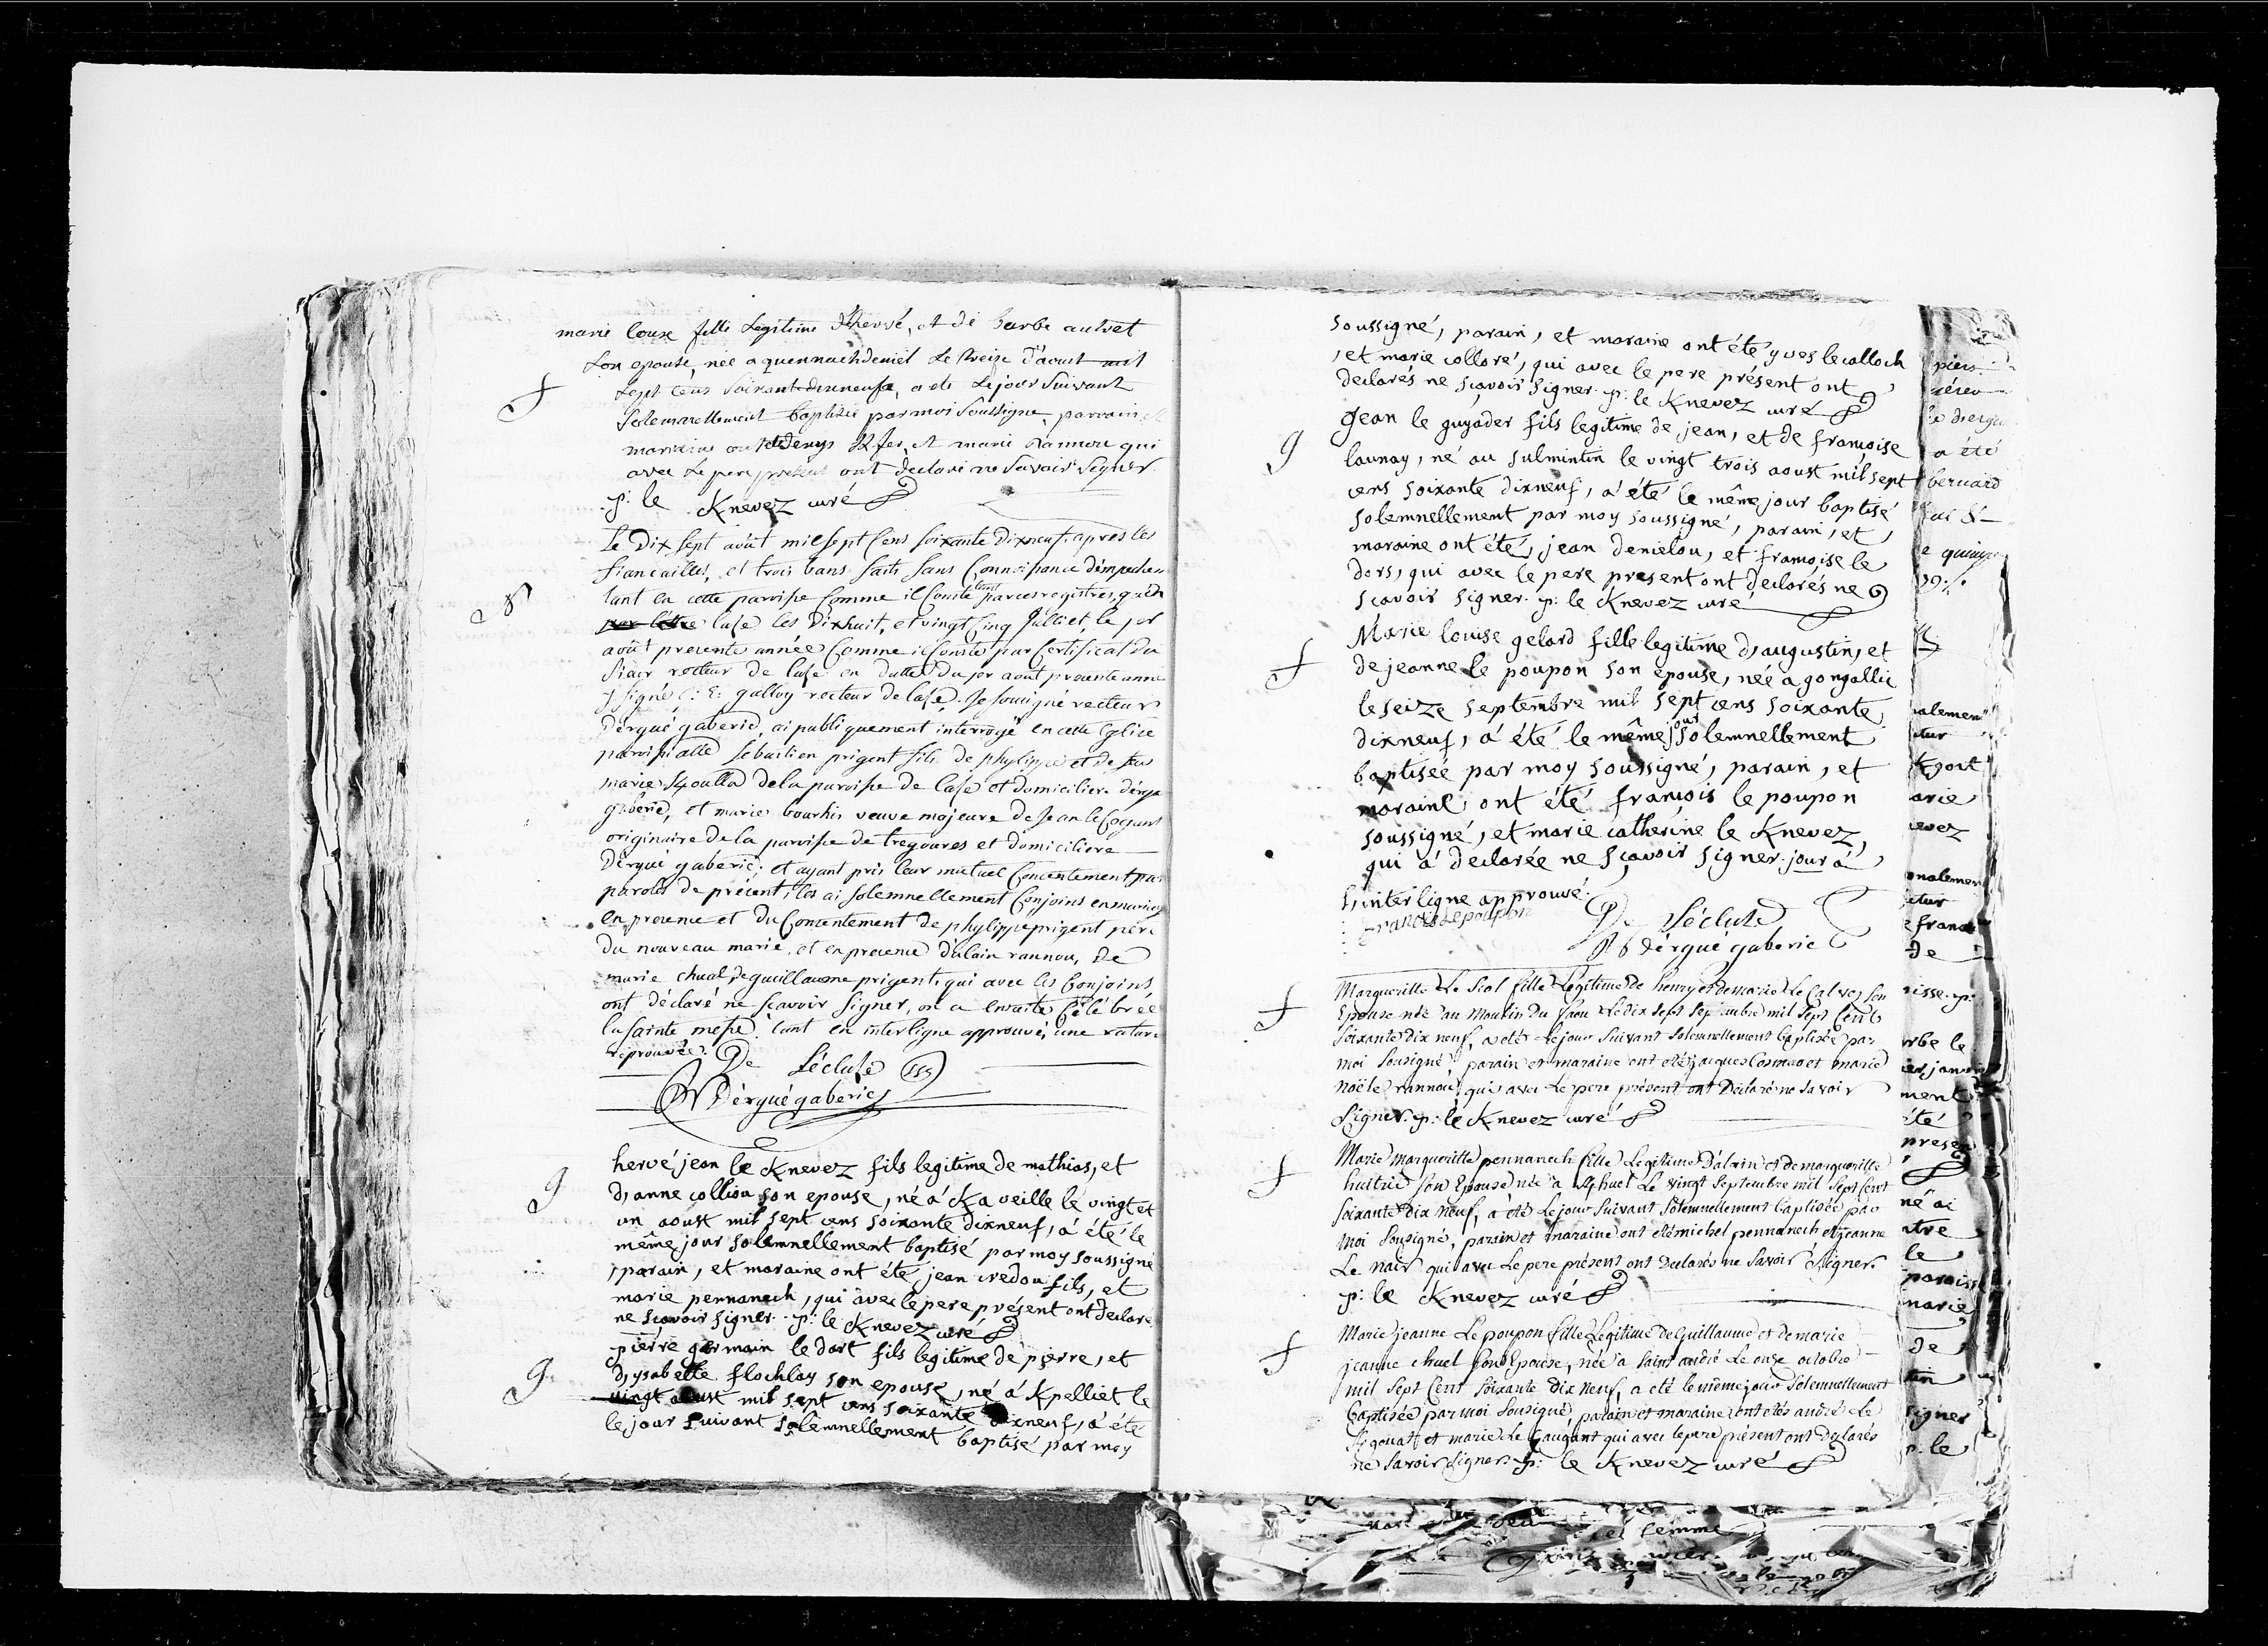 marie louise fille Legitime d'hervé, et de barbe autret
son epouse, née a quennachdeniel Le treize d'aoust mil
sept Cens Soixante dixneufe, a été Le jour Suivant
Solemnellement baptisée par moi Soussigné, parrain
marraine ont été denys et marie rannou qui
avec Le pere present ont declaré ne Savoir Signer
p: le Knevez curé
Le Dix Sept août mil sept Cens soixante Dixneuf apres les
fiancailles, et trois bans faits Sans Connoissance d'empeche
tant en cette paroisse Comme il Conste tant par ces registres, qu'en
par lettre lase les Dixhuit, et vingt Cinq Julliet, le jer
août presente année Comme il Conste par Certificat du
Sieur recteur de lase en datte du jer aout presente anné
Signé galloy recteur de lase. Je Souigné recteur
Dérgué gaberic, ai publiquement interrogé en cette Eglise
paroissialle Sebastien prigent fils de phylippe et de feu
marie de la paroisse de lase et domicilier dérgué
gaberic, et marie bourhis veuve majeure de Jean le Cogant
originaire de la paroisse de tregoures et domiciliere
Dérgué gaberic; et ayant pris leur mutuel Consentement par
paroles de présent, les ai Solemnellement Conjoins en mariag
en presence et du Consentement de phylippe prigent pere
du nouveau marié, et en presence d'alain rannou, de
marie chuat, de guillaume prigent, qui avec les Conjoins
ont déclaré ne Sçavoir Signer, on a ensuite Célébrée
la Sainte messe. tant en interligne approuvé, une rature
réprouvée. De Lécluse
Dérgué gaberic
hervé jean le Knevez fils legitime de mathias, et
d'anne colliou son epouse, né á Kaveille le vingt et
un aoust mil sept cens soixante dixneuf, á été le
même jour solemnellement baptisé par moy soussigné
, parain, et maraine ont été jean credou fils, et
marie pennanech, qui avec le pere présent ont declaré
ne sçavoir signer. p: le Knevez curé
pierre germain le dort fils legitime de pierre, et
d'ysabelle flochlay son epouse, né á Kpelliet le
vingt aoust mil sept cens soixante dixneuf, á été
le jour suivant solemnellement baptisé par moy
soussigné, parain, et maraine ont été yves le calloch
, et marie colloré, qui avec le pere présent ont
declarés ne sçavoir signer. p: le Knevez curé
jean le guyader fils legitime de jean, et de françoise
launay, né au sulmintin le vingt trois aoust mil sept
cens soixante dixneuf, á été le même jour baptisé
solemnellement par moy soussigné, parain, et
maraine ont été, jean denielou, et françoise le
dors, qui avec le pere present ont declarés ne
sçavoir signer. p: le Knevez curé
Marie louise gelard fille legitime d'augustin, et
de jeanne le poupon son epouse, née a gongallic
le seize septembre mil sept cens soixante
dixneuf, á été le même jour solemnellement
baptisée par moy soussigné, parain, et
maraine, ont été françois le poupon
soussigné, et marie catherine le Knevez,
qui á declarée ne sçavoir signer. jour á
l'interligne approuvé.
francois Lepoupon De Lécluse
Dérgué gaberic
Margueritte Le Scol fille Légitime de henry et de marie Le Calvez son
Epouse née au moulin du faou Le dix sept Septembre mil Sept Cent
Soixante dix neuf, a été Le jour Suivant Solemnellement baptisée par
moi Sousigné, parain et maraine ont été jacques Cosmao et marie
noële rannou, qui avec Le pere présent ont Déclaré ne Savoir
Signer. p: le Knevez curé
Marie Margueritte pennanech fille Légitime D'alain et de margueritte
huitric Son Epouse née a Le Vingt Septembre mil Sept Cent
Soixante Dix Neuf, a été Le jour Suivant Solemnellement Baptisée par
Moi Sousigné, parain et maraine ont été michel pennanech et jeanne
Le nair qui avec Le pere présent ont Declarés ne Savoir Signer.
p: le Knevez curé
Marie jeanne Le poupon fille Légitime de Guillaume et de marie
jeanne chuet Son Epouse, née a Saint andré Le onze octobre
mil Sept Cent Soixante Dix Neuf, a été le même jour Solemnellement
Baptisée par moi Sousigné, parain et maraine ont étés andré Le
et marie Le Gaugant qui avec le pere présent ont declarés
ne Savoir Signer. p: le Knevez curé